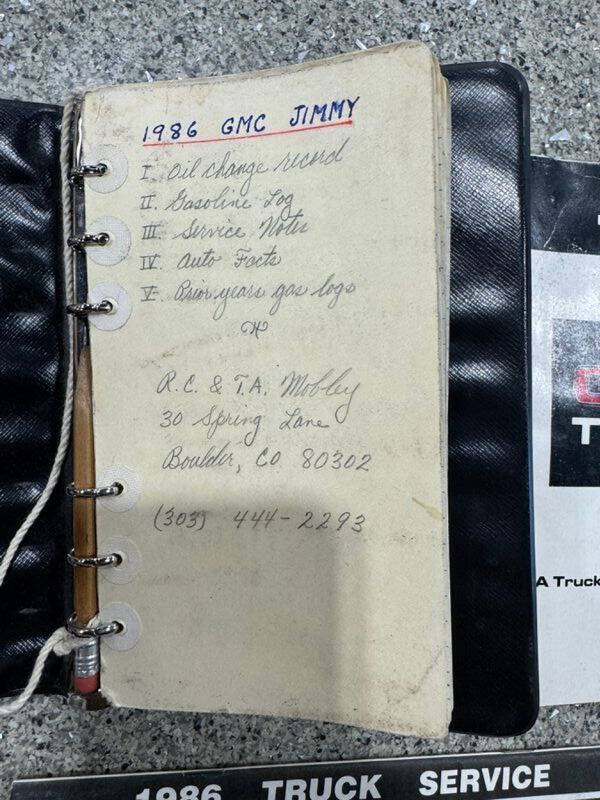 1986 GMC JIMMY
I. Oil change record
II. Gasoline Log
III. Service Notes
IV. Auto Facts
V. Prior years gas logs
R.C. & T.A. Mobley
30 Spring Lane
Boulder, CO 80302
(303) 444-2293
A Truck
1986 TRUCK SERVICE